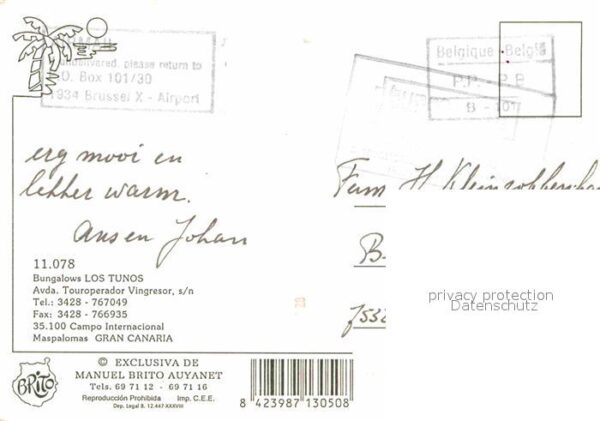 undelivered, please return to
P.O. Box 101/30
1934 Brussel X - Airport
Belgique - België
P.P. - P.P.
B -
erg mooi en
lekker warm.
Ans en Johan
Fam H
B
11.078
Bungalows LOS TUNOS
Avda. Touroperador Vingresor, s/n
Tel.: 3428 - 767049
Fax: 3428 - 766935
35.100 Campo Internacional
Maspalomas GRAN CANARIA
privacy protection
Datenschutz
BRITO
© EXCLUSIVA DE
MANUEL BRITO AUYANET
Tels. 69 71 12 - 69 71 16
Reproducción Prohibida Imp. C.E.E.
Dep. Legal B. 12.447-XXXVIII
8 423987 130508